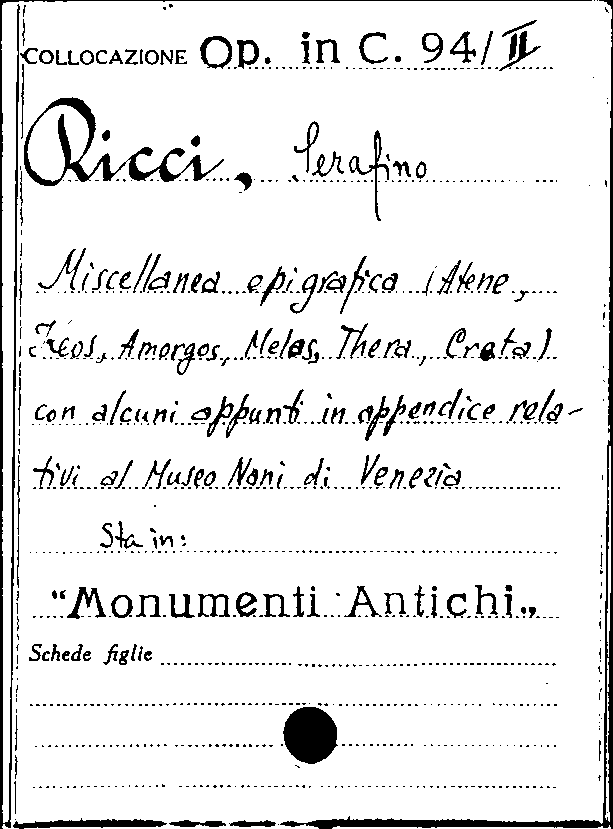 COLLOCAZIONE Op. in C. 94/II
Ricci, Serafino
Miscellanea epigrafica (Atene,
Keos, Amorgos, Melos, Thera, Creta)
con alcuni appunti in appendice rela-
tivi al Museo Nani di Venezia
Sta in:
"Monumenti Antichi"
Schede figlie